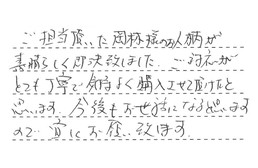 ご担当頂いた岡林様のお人柄が
素晴らしく即決致しました。ご対応が
とても丁寧で気持よく購入させて頂けたと
思います。今後もお世話になると思います
ので宜しくお願い致します。